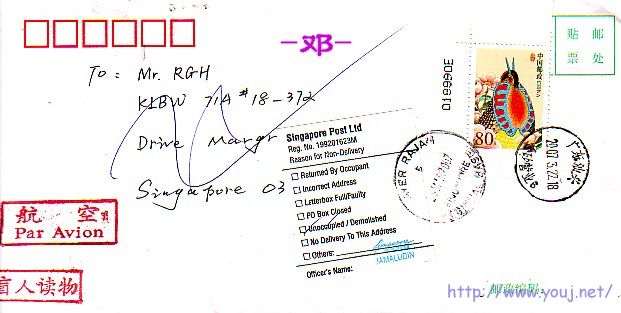 -邓-
贴 邮
票 处
019990E
中国邮政 CHINA
80分
To: Mr. RGH
KLBW 71A #18-372
Drive
Singapore 03
Singapore Post Ltd
Reg. No. 199201623M
Reason for Non-Delivery
Returned By Occupant
Incorrect Address
Letterbox Full/Faulty
PO Box Closed
Unoccupied / Demolished
No Delivery To This Address
Others:
JAMALUDIN
Officer's Name:
AYER RAJAH
广东
2007.3.22.18
航 空
Par Avion
盲人读物
邮政编码:
http://www.youj.net/